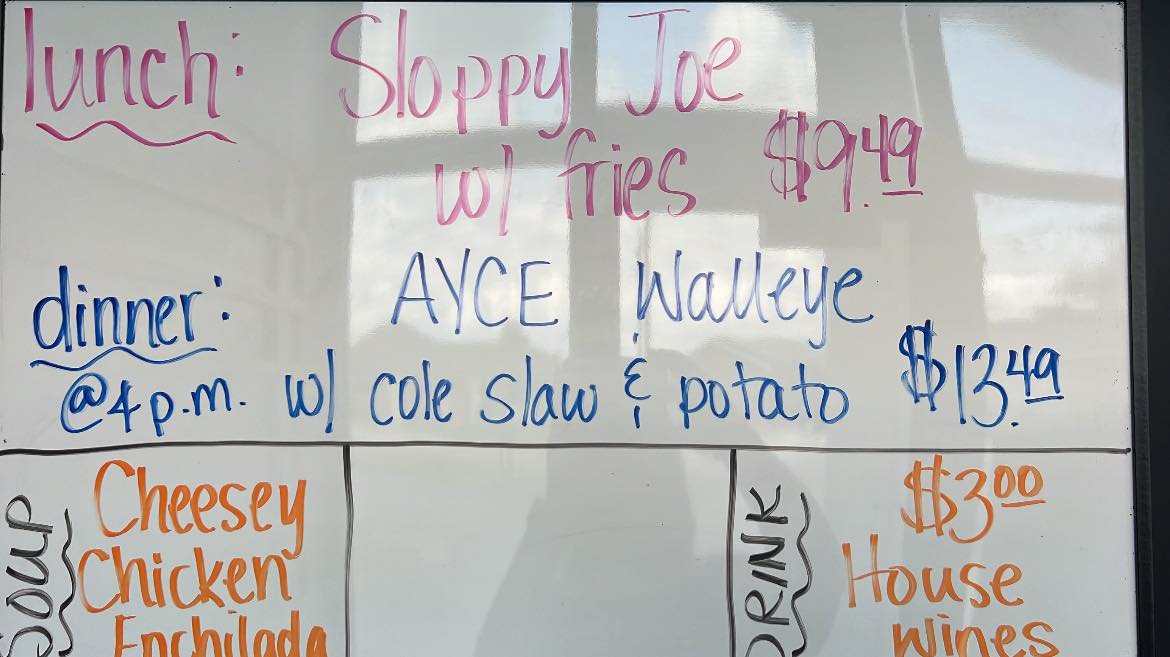 lunch: Sloppy Joe
w/ fries $9.49
dinner: AYCE Walleye
@4p.m. w/ cole slaw & potato $13.49
SOUP
Cheesey
Chicken
Enchilada
DRINK
$3.00
House
Wines